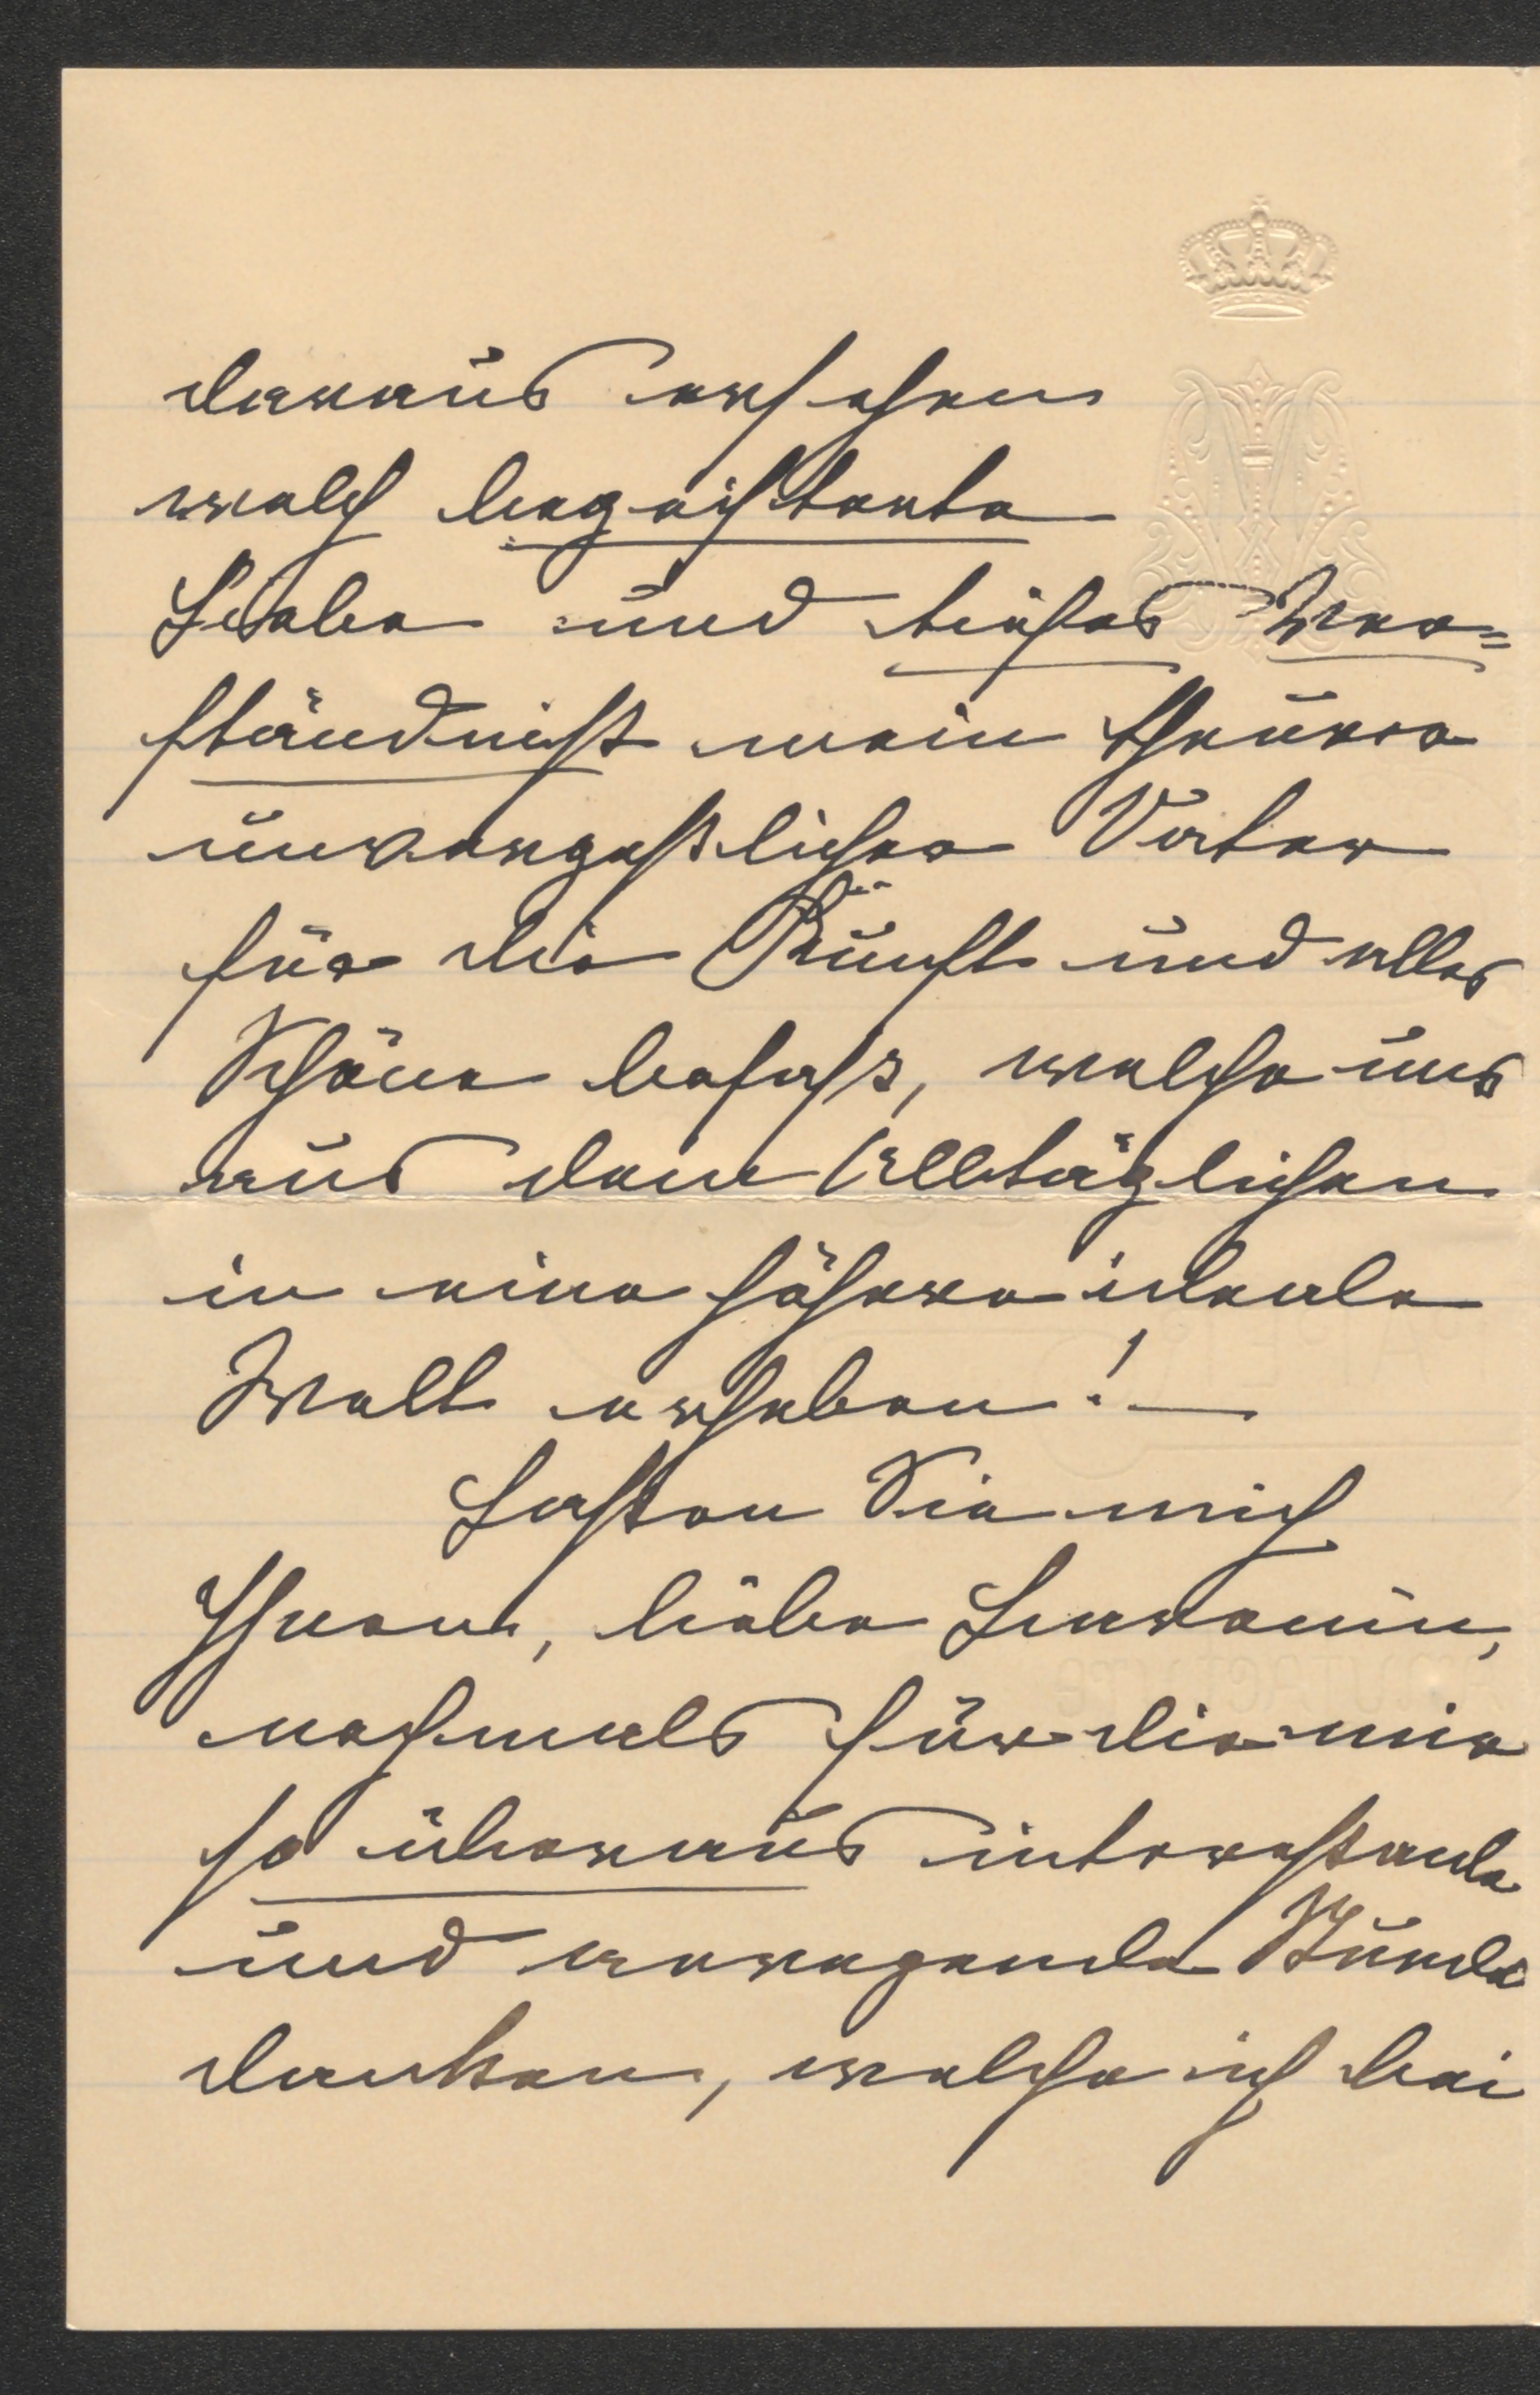 daraus ersehen
welch begeisterte
Liebe und tiefes Ver=
ständniß mein theurer
unvergeßlicher Vater
für die Kunst und alles
Schöne besaß, welche uns
aus dem Alltäglichen
in eine höhere ideale
Welt erheben! —
Laßen Sie mich
Ihnen, liebe Baronin,
nochmals für die mir
so überaus interessante
und anregende Stunde
danken, welche ich bei